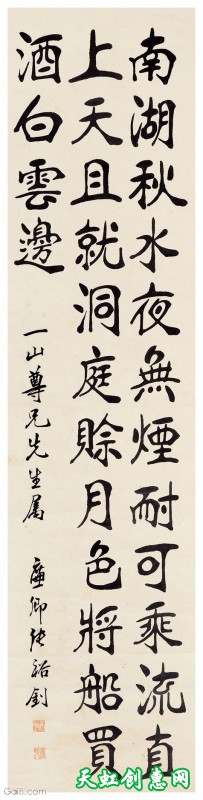 南湖秋水夜無煙耐可乘流直
上天且就洞庭賒月色將船買
酒白雲邊
一山尊兄先生属
廉卿张裕釗
Gai6.com
天虹创意网